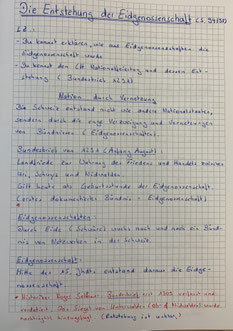 Die Entstehung der Eidgenossenschaft (S. 94/95)
LZ:
- Du kannst erklären, wie aus Eidgenossenschaften die
Eidgenossenschaft wurde
- Du kennst den CH Nationalfeiertag und dessen Ent-
stehung (Bundesbrief 1291)
Nation durch Vernetzung
Die Schweiz entstand nicht wie andere Nationalstaaten,
sondern durch die enge Verzweigung und Vernetzungen
von Bündnissen (Eidgenossenschaften).
Bundesbrief von 1291 (Anfang August):
Landfriede zur Wahrung des Friedens und Handels zwischen
Uri, Schwyz und Nidwalden.
Gilt heute als Geburtsstunde der Eidgenossenschaft.
(erstes dokumentiertes Bündnis = Eidgenossenschaft)
Eidgenossenschaften:
Durch Eide (Schwüre) wuchs nach und nach ein Bünd-
nis von Netzwerken in der Schweiz.
Eidgenossenschaft:
Mitte des 15. Jhdts entstand daraus die Eidge-
nossenschaft.
* Historiker Roger Sablonier: Bundesbrief erst 1309 verfasst und
vordatiert. Das Siegel von Unterwalden (Ob- & Nidwalden) wurde
nachträglich hinzugefügt. (Entstehung ist unklar)